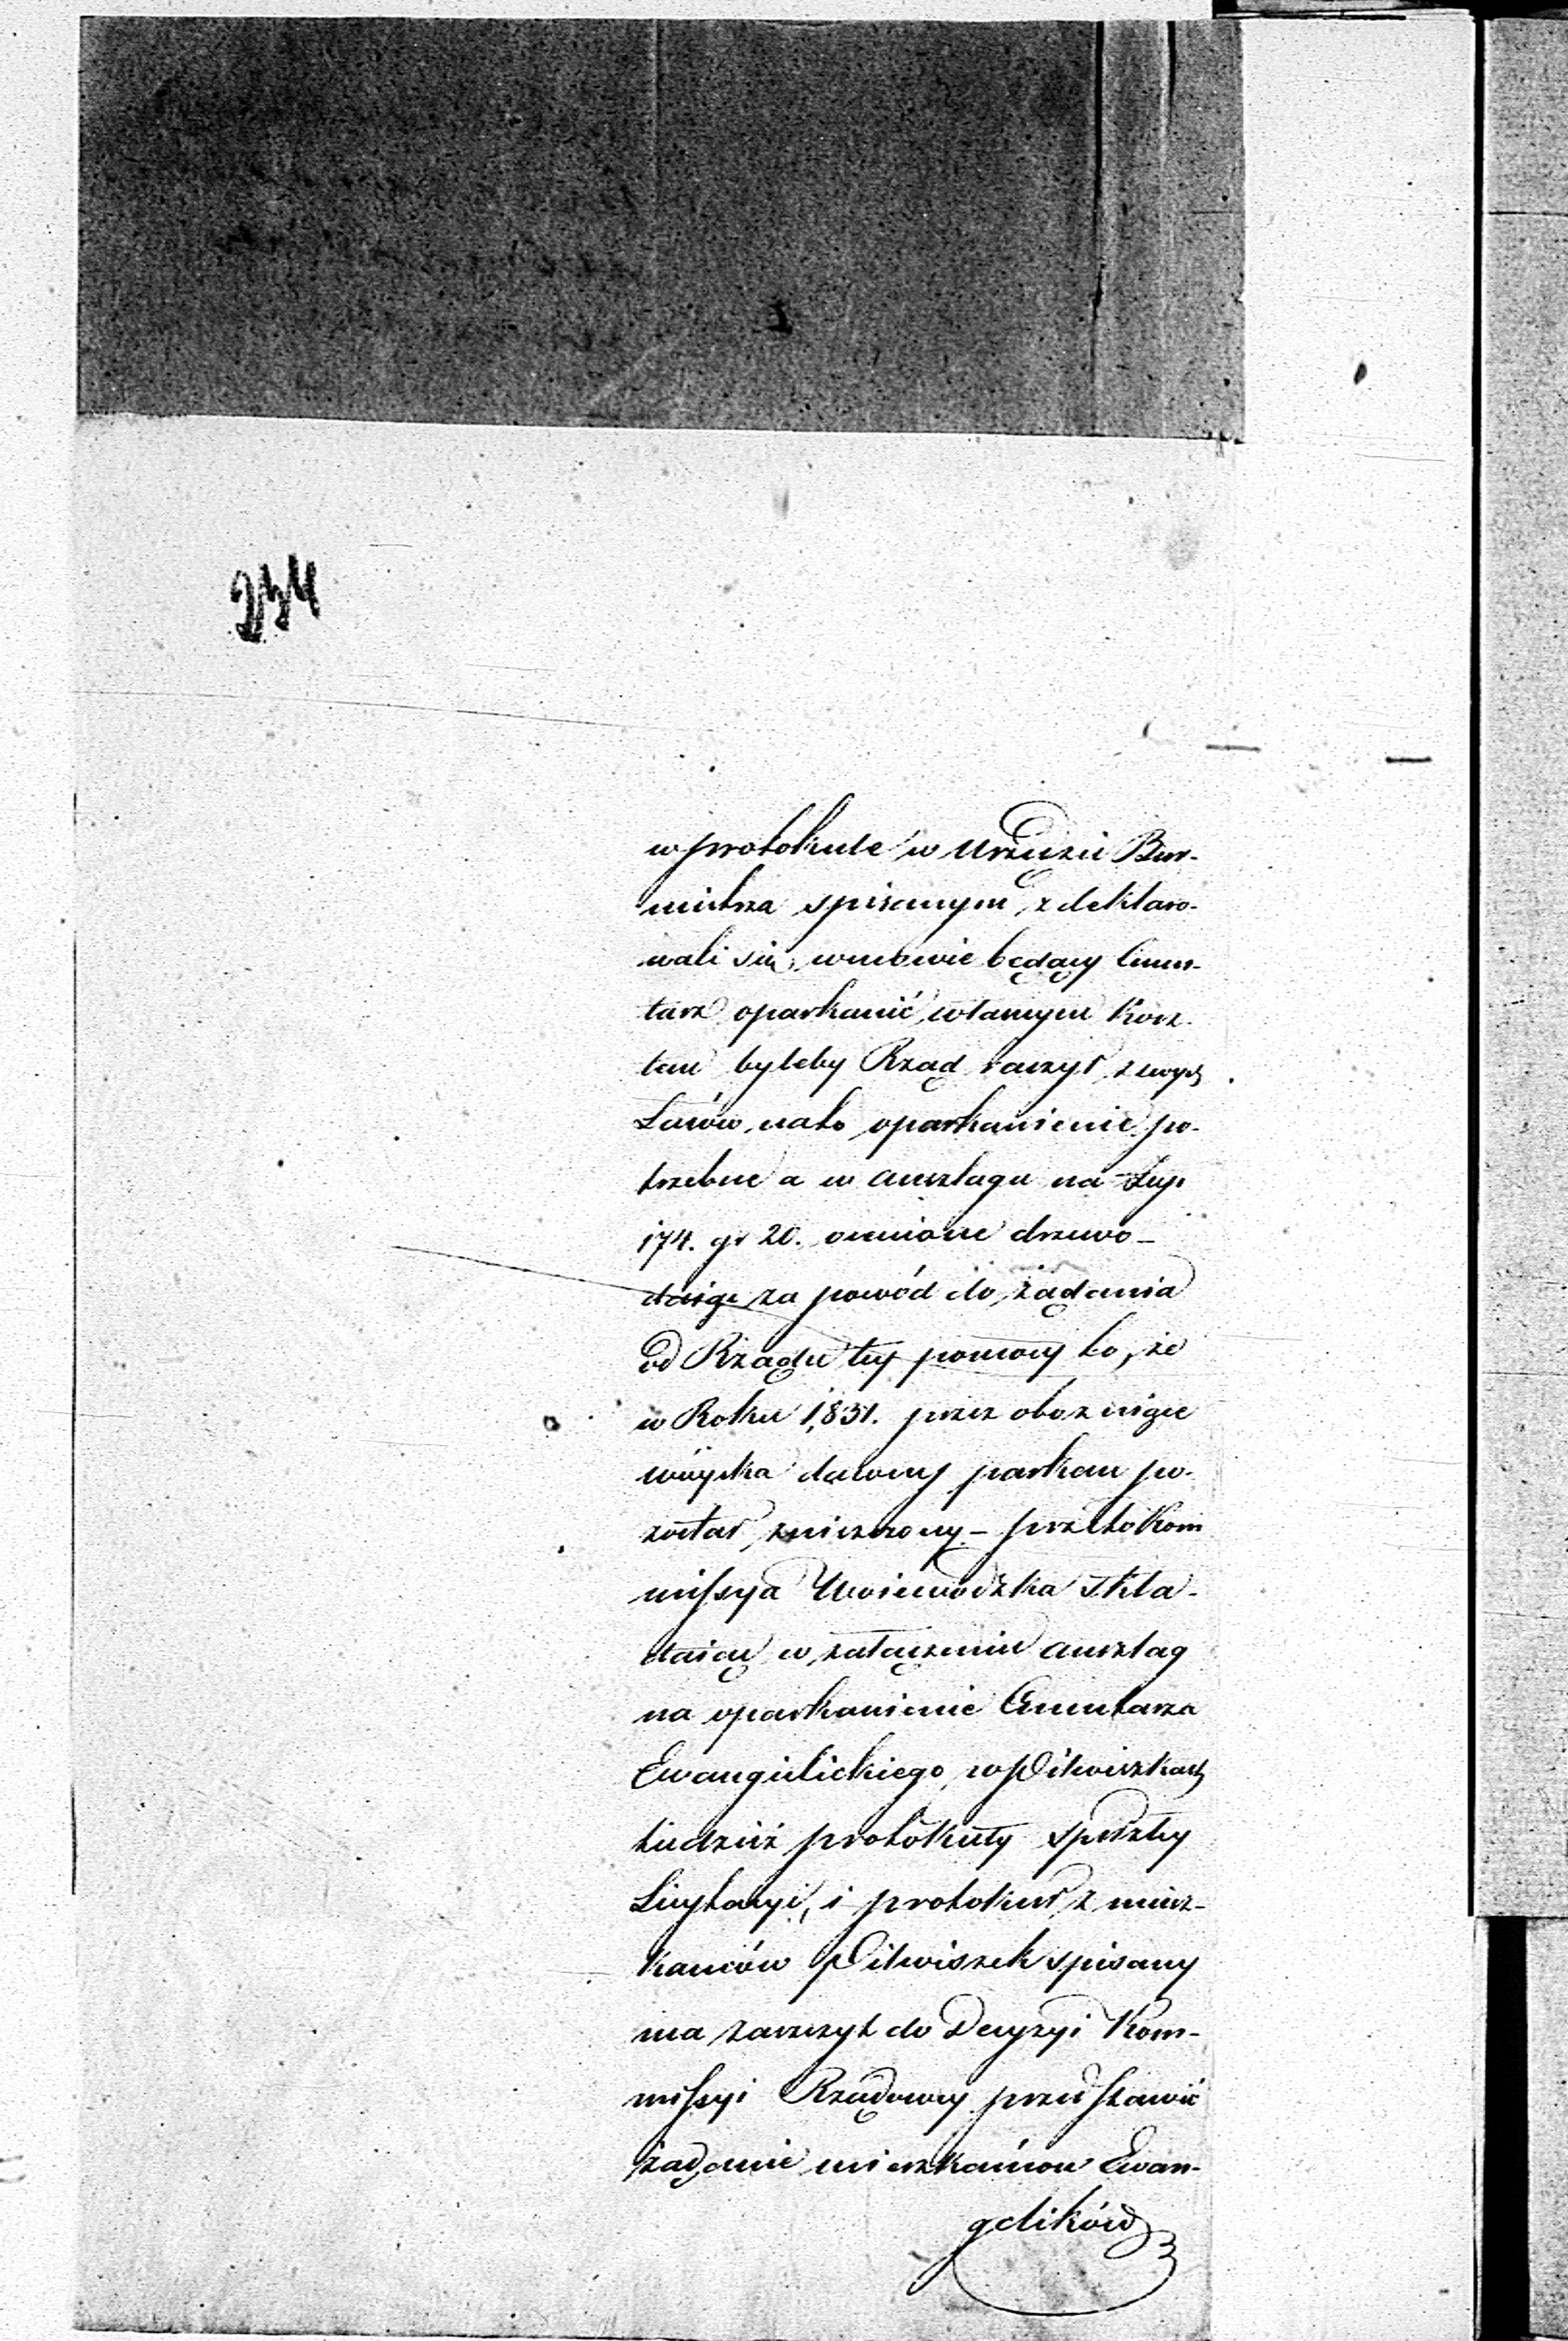 234
w protokule w Urzędzie Bur-
mistrza spisanym, zdeklaro-
wali się, wmowie będący Cmen-
tarz oparkanić własnym kosz-
tem byleby Rząd raczył z swych
Lasów, na to oparkanienie po-
trzebne a w anszlagu na Złp.
174. gr 20. ocenione drzewo –
daiąc za powód do żądania
od Rządu tey pomocy to, że
w Roku 1,831. przez oboz
woyska dawny parkan po-
został zniszczony – przeto Kom
missya Woiewodzka skła-
daiąc w załączeniu anszlag
na oparkanienie Cmentarza
Ewangielickiego w Pilwiszkach
tudzież protokuły spełzłey
Licytacyi, i protokuł z miesz-
kańców Pilwiszek spisany
ma zaszczyt do Decyzyi Kom-
missyi Rządowey przedstawić
żądanie mieszkańcow Ewan-
gelików